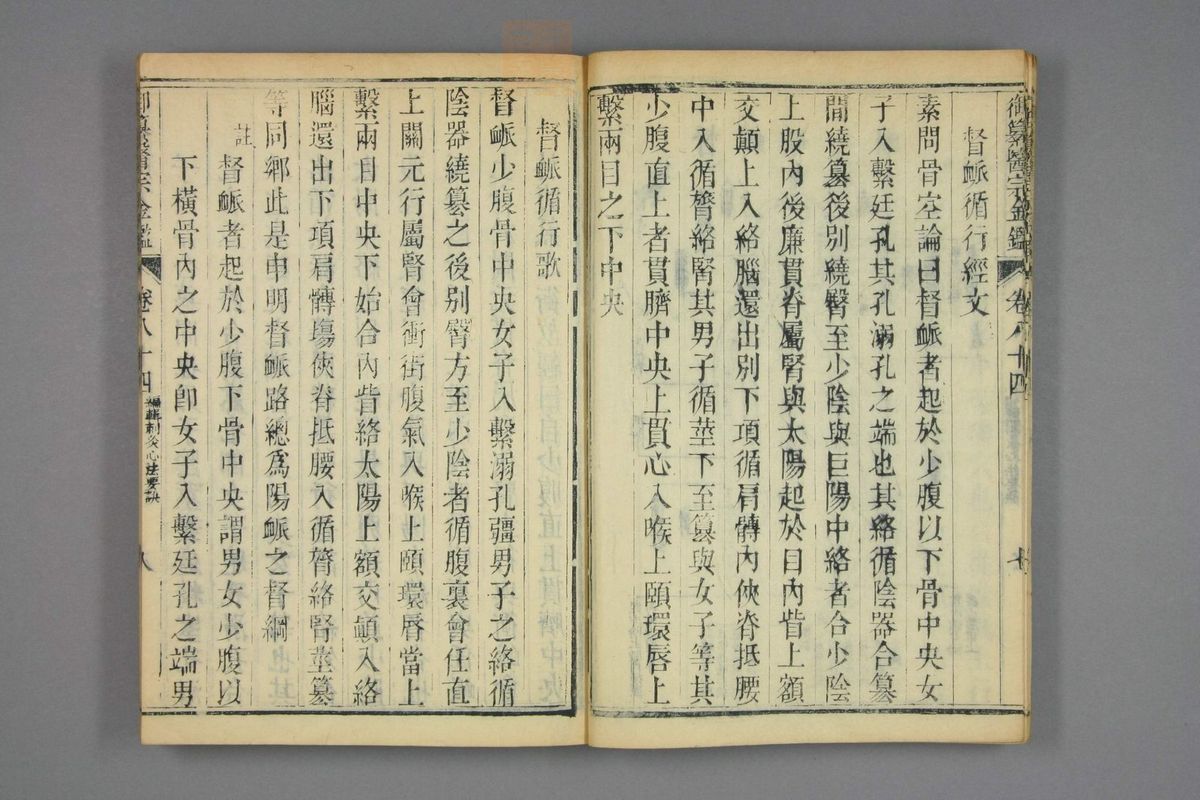 御纂醫宗金鑑 卷八十四 七
督脈循行經文
素問骨空論曰督脈者起於少腹以下骨中央女
子入繫廷孔其孔溺孔之端也其絡循陰器合篡
間繞篡後別繞臀至少陰與巨陽中絡者合少陰
上股內後廉貫脊屬腎與太陽起於目內眥上額
交顛上入絡腦還出別下項循肩髆內俠脊抵腰
中入循膂絡腎其男子循莖下至篡與女子等其
少腹直上者貫臍中央上貫心入喉上頤環唇上
繫兩目之下中央
督脈循行歌
督脈少腹骨中央女子入繫溺孔疆男子之絡循
陰器繞篡之後別臀方至少陰者循腹裏會任直
上關元行屬腎會衝街腹氣入喉上頤環唇當上
繫兩目中央下始合內眥絡太陽上額交顛入絡
腦還出下項肩髆場俠脊抵腰入循膂絡腎莖篡
等同鄉此是申明督脈路總爲陽脈之督綱
註
督脈者起於少腹下骨中央謂男女少腹以
下橫骨內之中央卽女子入繫廷孔之端男
御纂醫宗金鑑 卷八十四 編輯刺灸心法要訣 八